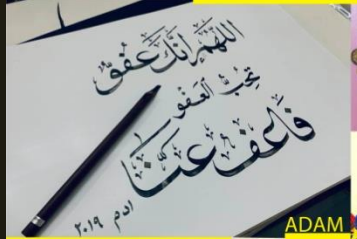 اللهم إنك عفو
تحب العفو
فاعف عنا
ادم ٢٠١٩
ADAM